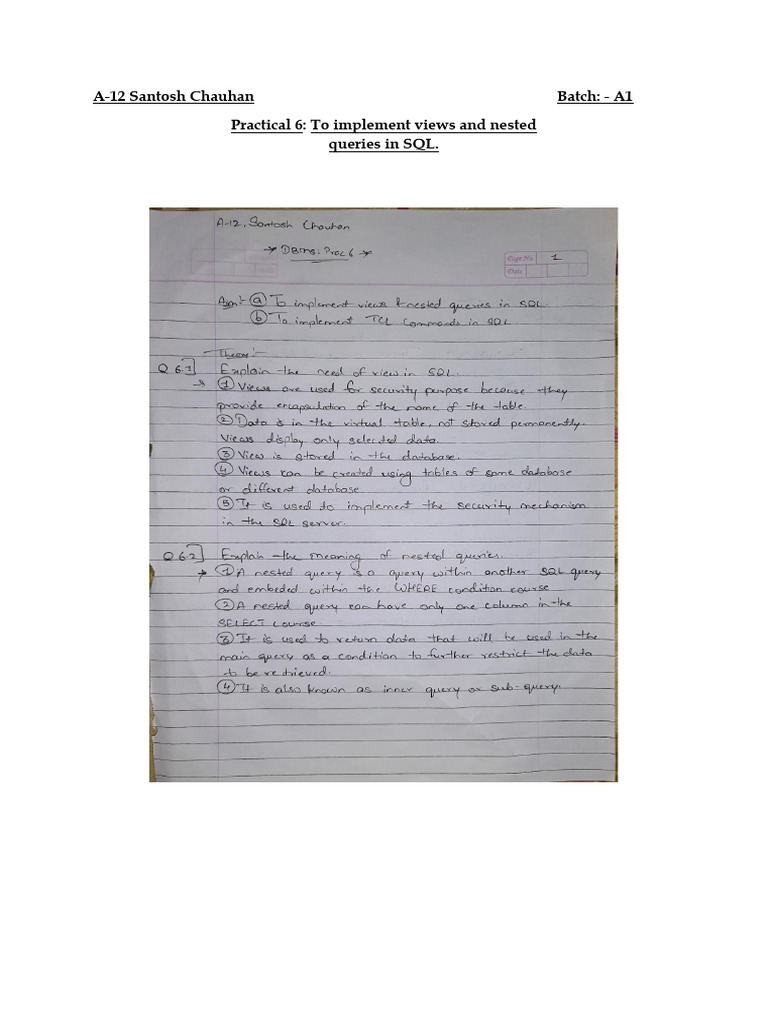 A-12 Santosh Chauhan Batch: - A1
Practical 6: To implement views and nested
queries in SQL.
A-12, Santosh Chauhan
DBMS: Prac 6
Page No 1
Date
Aim:- (a) To implement views & nested queries in SQL.
(b) To implement TCL Commands in SQL
Theory:-
Q 6.1] Explain the need of view in SQL.
→ (1) Views are used for security purpose because they
provide encapsulation of the name of the table.
(2) Data is in the virtual table, not stored permanently.
Views display only selected data.
(3) View is stored in the database.
(4) Views can be created using tables of same database
or different database
(5) It is used to implement the security mechanism
in the SQL server.
Q 6.2] Explain the meaning of nested queries.
→ (1) A nested query is a query within another SQL query
and embeded within the WHERE condition course
(2) A nested query can have only one column in the
SELECT course.
(3) It is used to return data that will be used in the
main query as a condition to further restrict the data
to be retrieved.
(4) It is also known as inner query or sub-query.